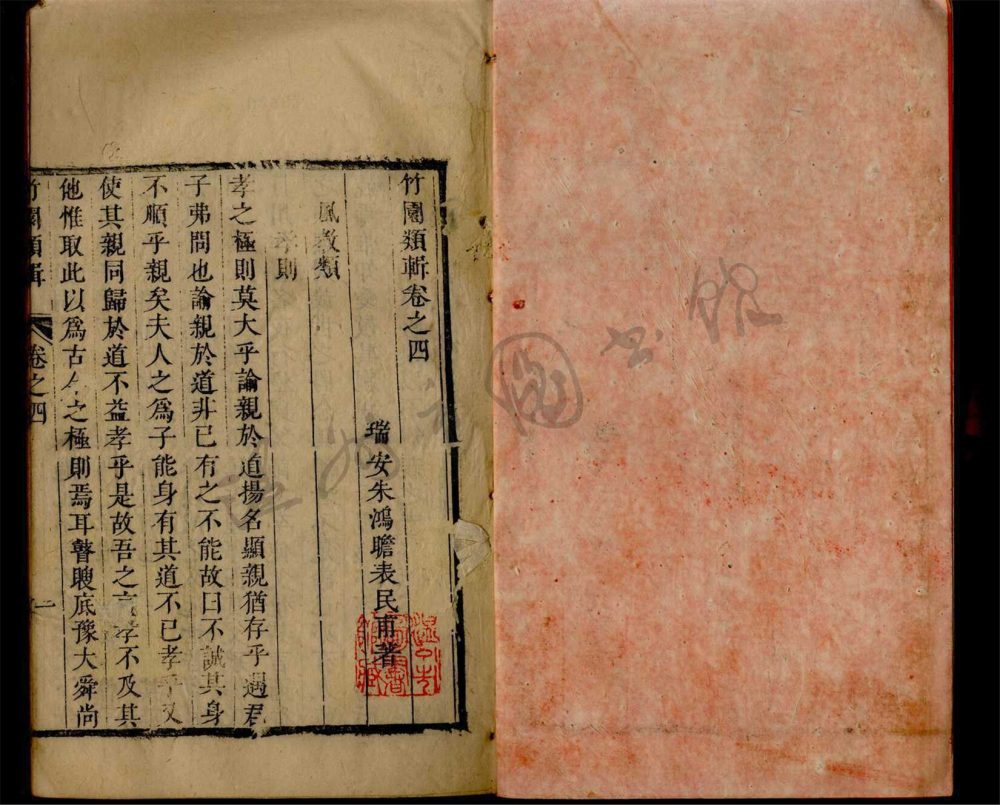 竹園類輯卷之四
瑞安朱鴻瞻表民甫著
風教類
孝則
孝之極則莫大乎諭親於道揚名顯親猶存乎遇君
子弗問也諭親於道非已有之不能故曰不誠其身
不順乎親矣夫人之為子能身有其道不已孝乎又
使其親同歸於道不益孝乎是故吾之言孝不及其
他惟取此以為古今之極則焉耳瞽瞍底豫大舜尚
竹園類輯
卷之四
一
圖書館